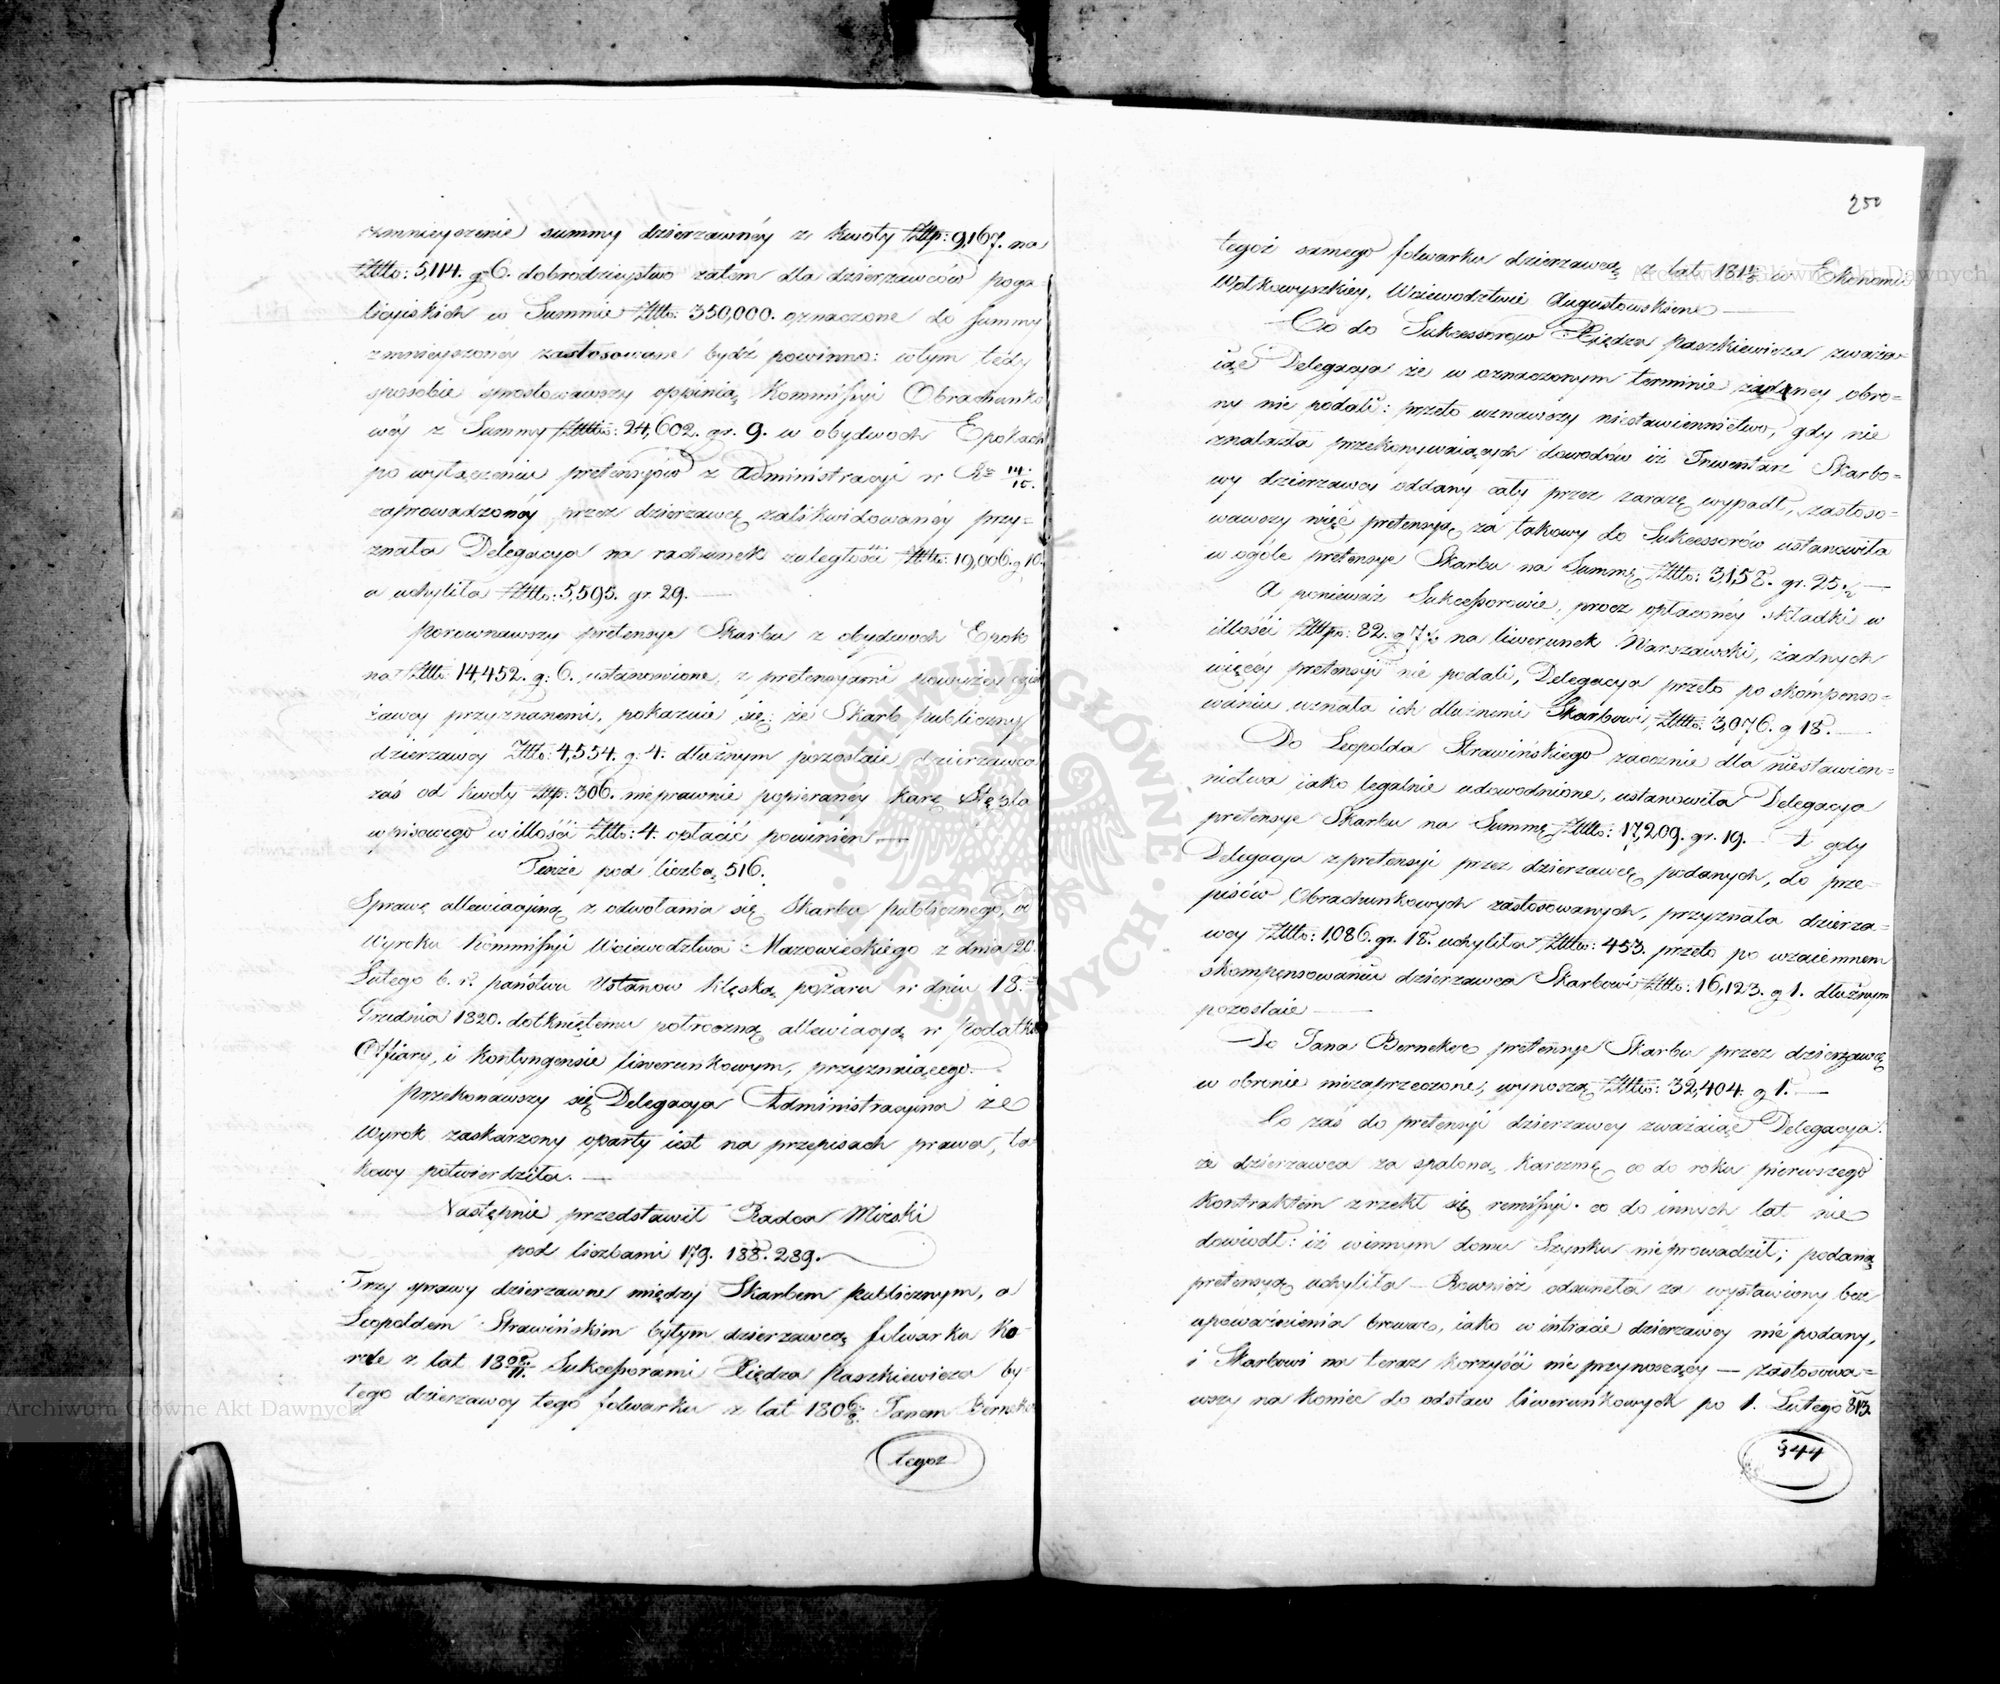 zmnieyszenie summy dzierzawnéy z kwoty Złtp: 9,167. na
Złtto: 5,114. g 6. dobrodzieystwo zatem dla dzierzawców poga-
licyiskich w Summie Złtto: 350,000. oznaczone do summy
zmnieyszonéy zastosowane bydź powinno: wtym tedy
sposobie sprostowawszy oppinią Kommissyi Obrachunko
wéy z Summy Złtto: 24,602. gr. 9. w obydwoch Epokach
po wyłączeniu pretensyów z Administracyi w Rº 14/15.
zaprowadzonéy przez dzierzawcę zalikwidowanéy przy-
znała Delegacya na rachunek zaległości Złtto: 19,006. g 10.
a uchyliła Złtto: 5,595. gr. 29. —
Porownawszy pretensye Skarbu z obydwoch Epok
na Złtto: 14,452. g: 6. ustanowione, z pretensyami powyżéy dzier
żawcy przyznanemi, pokazuie się: że Skarb publiczny
dzierzawcy Złtto: 4,554. g: 4. dłużnym pozostaie, dzierzawca
zaś od kwoty Złtp: 306. nieprawnie popieranéy karę Stępla
wpisowego w illości Złtto: 4. opłacić powinien —
Tenże pod liczbą 516.
Sprawę allewiacyiną z odwołania się Skarbu publicznego, od
Wyroku Kommissyi Woiewodztwa Mazowieckiego z dnia 20.
Lutego b. r. państwu Ustanow klęską pożaru w dniu 18.
Grudnia 1820. dotkniętemu potroczną allewiacyą w Podatku
Offiary, i kontyngensie liwerunkowym, przyznaiącego. —
Przekonawszy się Delegacya Administracyina że
Wyrok zaskarzony oparty iest na przepisach prawa, ta
kowy potwierdziła. —
Następnie przedstawił Radca Mirski
pod liczbami 179. 188. 289. —
Trzy sprawy dzierzawne między Skarbem Publicznym, a
Leopoldem Strawińskim byłym dzierzawcą folwarku Ko-
rzle z lat 1809/11. Sukcessorami Xiędza Paszkiewicza by-
łego dzierzawcy tego folwarku z lat 1806/8. Janem Berneke
tegoz
250
tegoż samego folwarku dzierzawcą z lat 181 w Ekonomii
Wyłkowyszkiey, Woiewodztwie Augustowskiem —
Co do Sukcessorów Xiędza Paszkiewicza zważa-
iąc Delegacya że w oznaczonym terminie żadney obro-
ny nie podali: przeto uznawszy niestawiennictwo, gdy nie
znalazła przekonywaiących dowodów iż Inwentarz Skarbo-
wy dzierzawcy oddany cały przez zarazę wypadł, zastoso-
wawszy więc pretensyą za takowy do Sukcessorów ustanowiła
w ogóle pretensye Skarbu na Summę Złtto: 3,158. gr. 25. ½ —
A ponieważ Sukcessorowie, procz opłaconéy składki w
illości Złtpo: 82. g 7 ½ na liwerunek Warszawski, żadnych
więcéy pretensyi nie podali, Delegacya przeto po skompenso-
waniu uznała ich dłużnemi Skarbowi, Złtto: 3,076. g 18. —
Do Leopolda Strawińskiego zaocznie dla niestawien-
nictwa iako legalnie udowodnione, ustanowiła Delegacya
pretensye Skarbu na Summę Złtto: 17,209. gr. 19. — I gdy
Delegacya z pretensyi przez dzierzawcę podanych, do prze-
pisów Obrachunkowych zastosowanych, przyznała dzierza-
wcy Złtto: 1,086. gr. 18. uchyliła Złtto: 453. przeto po wzaiemnem
skompensowaniu dzierzawca Skarbowi Złtto: 16,123. g 1. dłużnym
pozostaie —
Do Jana Berneke pretensye Skarbu przez dzierzawcę
w obronie niezaprzeczone, wynoszą Złtto: 32,404. g 1. —
Co zaś do pretensyi dzierzawcy zważaiąc Delegacya:
że dzierzawca za spaloną karczmę co do roku pierwszego
kontraktem zrzekł się remissyi. co do innych lat nie
dowiodł: iż winnym domu Szynku nieprowadził; podaną
pretensyą uchyliła — Rownież odsunęła za wystawiony bez
upoważnienia browar, iako w intracie dzierzawcy nie podany,
i Skarbowi na teraz korzyści nie przynoszący — zastosowa-
wszy na koniec do odstaw liwerunkowych po 1. Lutego 813.
344
ARCHIWUM GŁÓWNE AKT DAWNYCH
Archiwum Główne Akt Dawnych
Archiwum Główne Akt Dawnych